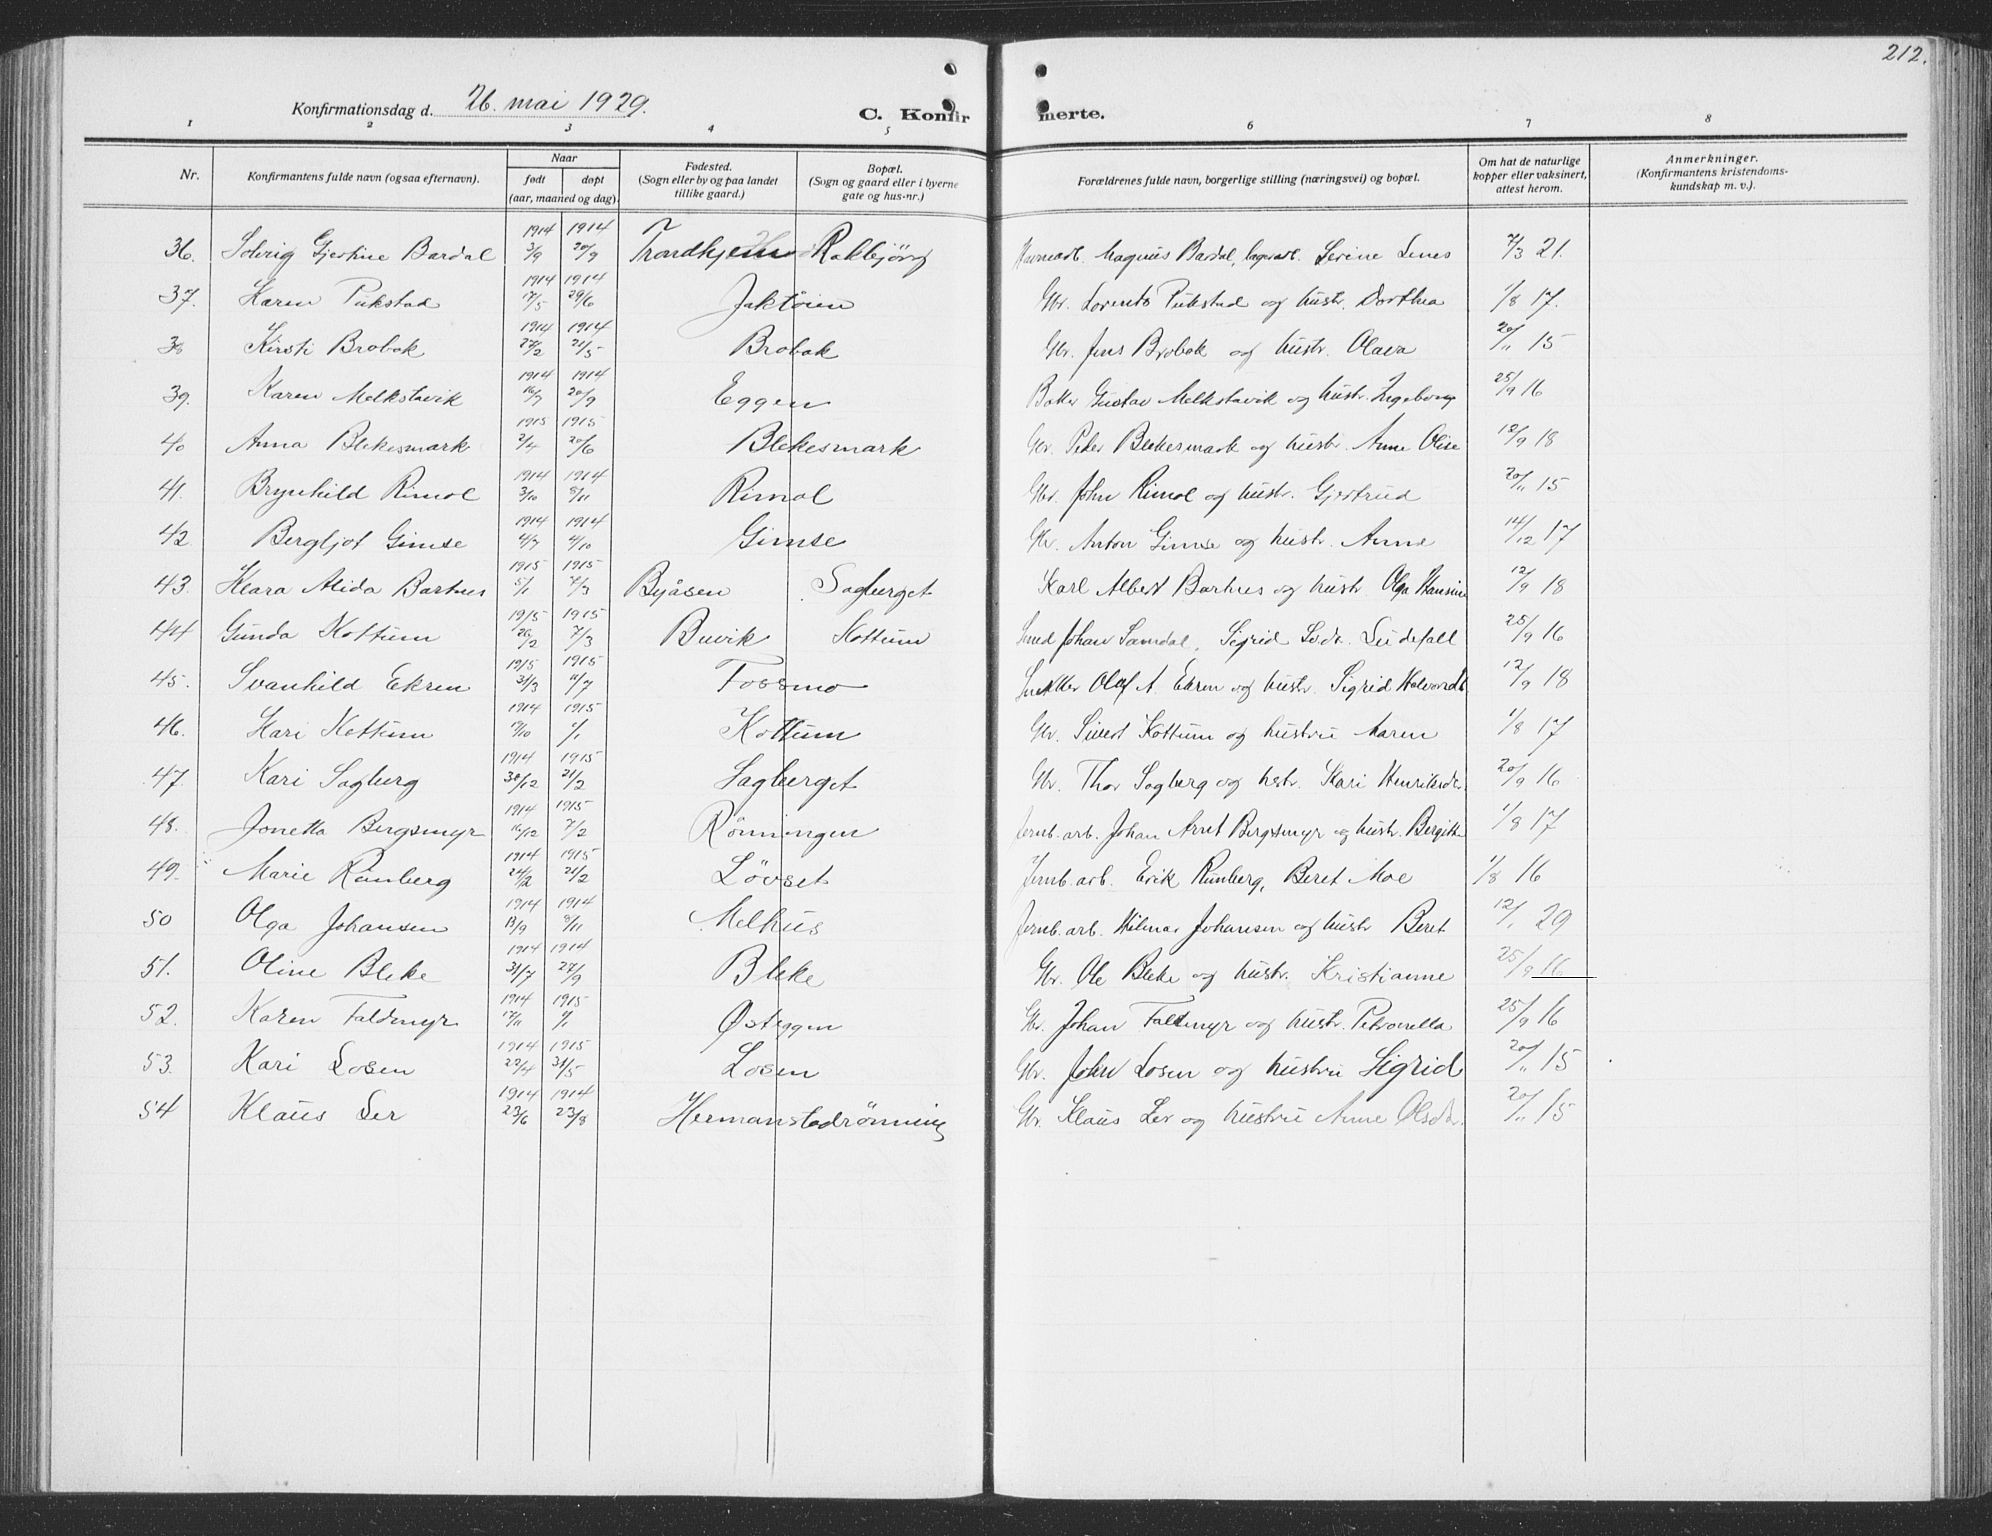 212.
Konfirmationsdag d. 26. mai 1929.
C. Konfirmerte.
1 2 3 4 5 6 7 8
Nr. Konfirmantens fulde navn (ogsaa efternavn). Naar født døpt (aar, maaned og dag). Fødested. (Sogn eller by og paa landet tillike gaard.) Bopæl. (Sogn og gaard eller i byerne gate og hus-nr.) Forældrenes fulde navn, borgerlige stilling (næringsvei) og bopæl. Om hat de naturlige kopper eller vaksinert, attest herom. Anmerkninger. (Konfirmantens kristendomskundskap m. v.).
36. Solveig Gjertine Bardal 1914 3/9 1914 20/9 Trondhjem Rakbjörg Havnearb. Magnus Bardal, lagerarb. Serine Lenes 7/3 21.
37. Karen Pukstad 1914 17/5 1914 29/6 Jaktöien Gbr. Lorents Pukstad og hustr. Dorthea 1/8 17.
38 Kirsti Brobak 1914 27/2 1914 21/5 Brobak Gbr. Jens Brobak og hustr. Olava 20/11 15
39. Karen Melkstavik 1914 16/7 1914 20/9 Eggen Baker Gustav Melkstavik og hustr. Ingeborg 25/9 16
40 Anna Blekesmark 1915 2/4 1915 20/6 Blekesmark Gbr. Peder Blekesmark og hustr. Anne Olise 12/9 18
41. Brynhild Rimol 1914 3/10 1914 8/11 Rimol Gbr. John Rimol og hustr. Gjertrud 20/11 15
42. Bergljot Gimse 1914 4/7 1914 4/10 Gimse Gbr. Anton Gimse og hustr. Anne 14/12 17
43. Klara Alida Bartnes 1915 5/1 1915 7/3 Byåsen Sagberget Karl Albert Bartnes og hustr Olga Hansine 12/9 18
44 Gunda Kottum 1915 26/2 1915 7/3 Buvik Kottum Smed Johan Samdal, Sigrid Lindefall 25/9 16
45. Svanhild Ekren 1915 31/3 1915 11/7 Fossmo Snekker Olaf A. Ekren og hustr. Sigrid Halvordt. 12/9 18
46. Kari Kottum 1914 17/10 1915 1/1 Kottum Gbr. Sivert Kottum og hustru Maren 1/8 17
47. Kari Sagberg 1914 30/12 1915 21/2 Sagberget Gbr. Thor Sagberg og hstr. Kari Henriksdr. 20/9 16
48. Jonetta Bergsmyr 1914 16/12 1915 7/2 Rönningen Jernb. arb. Johan Arnt Bergsmyr og hustr. Bergitte 1/8 17
49. Marie Rånberg 1914 24/12 1915 21/2 Lövset Jernb. arb. Erik Rånberg, Beret Moe 1/8 16
50 Olga Johansen 1914 13/9 1914 8/11 Melhus Jernb. arb. Hilmar Johansen og hustr Beret 12/1 29
51. Oline Bleke 1914 31/7 1914 27/9 Bleke Gbr. Ole Bleke og hustr. Kristianne 25/9 16
52. Karen Faldmyr 1914 17/11 1915 1/1 Østeggen Gbr. Johan Faldmyr og hustr. Petronella 25/9 16
53. Kari Losen 1914 22/4 1915 31/5 Losen Gbr. John Losen og hustru Sigrid 20/11 15
54 Klaus Ler 1914 23/6 1914 23/8 Hermanstadrönning Gbr. Klaus Ler og hustru Anne Olsdtr. 20/11 15